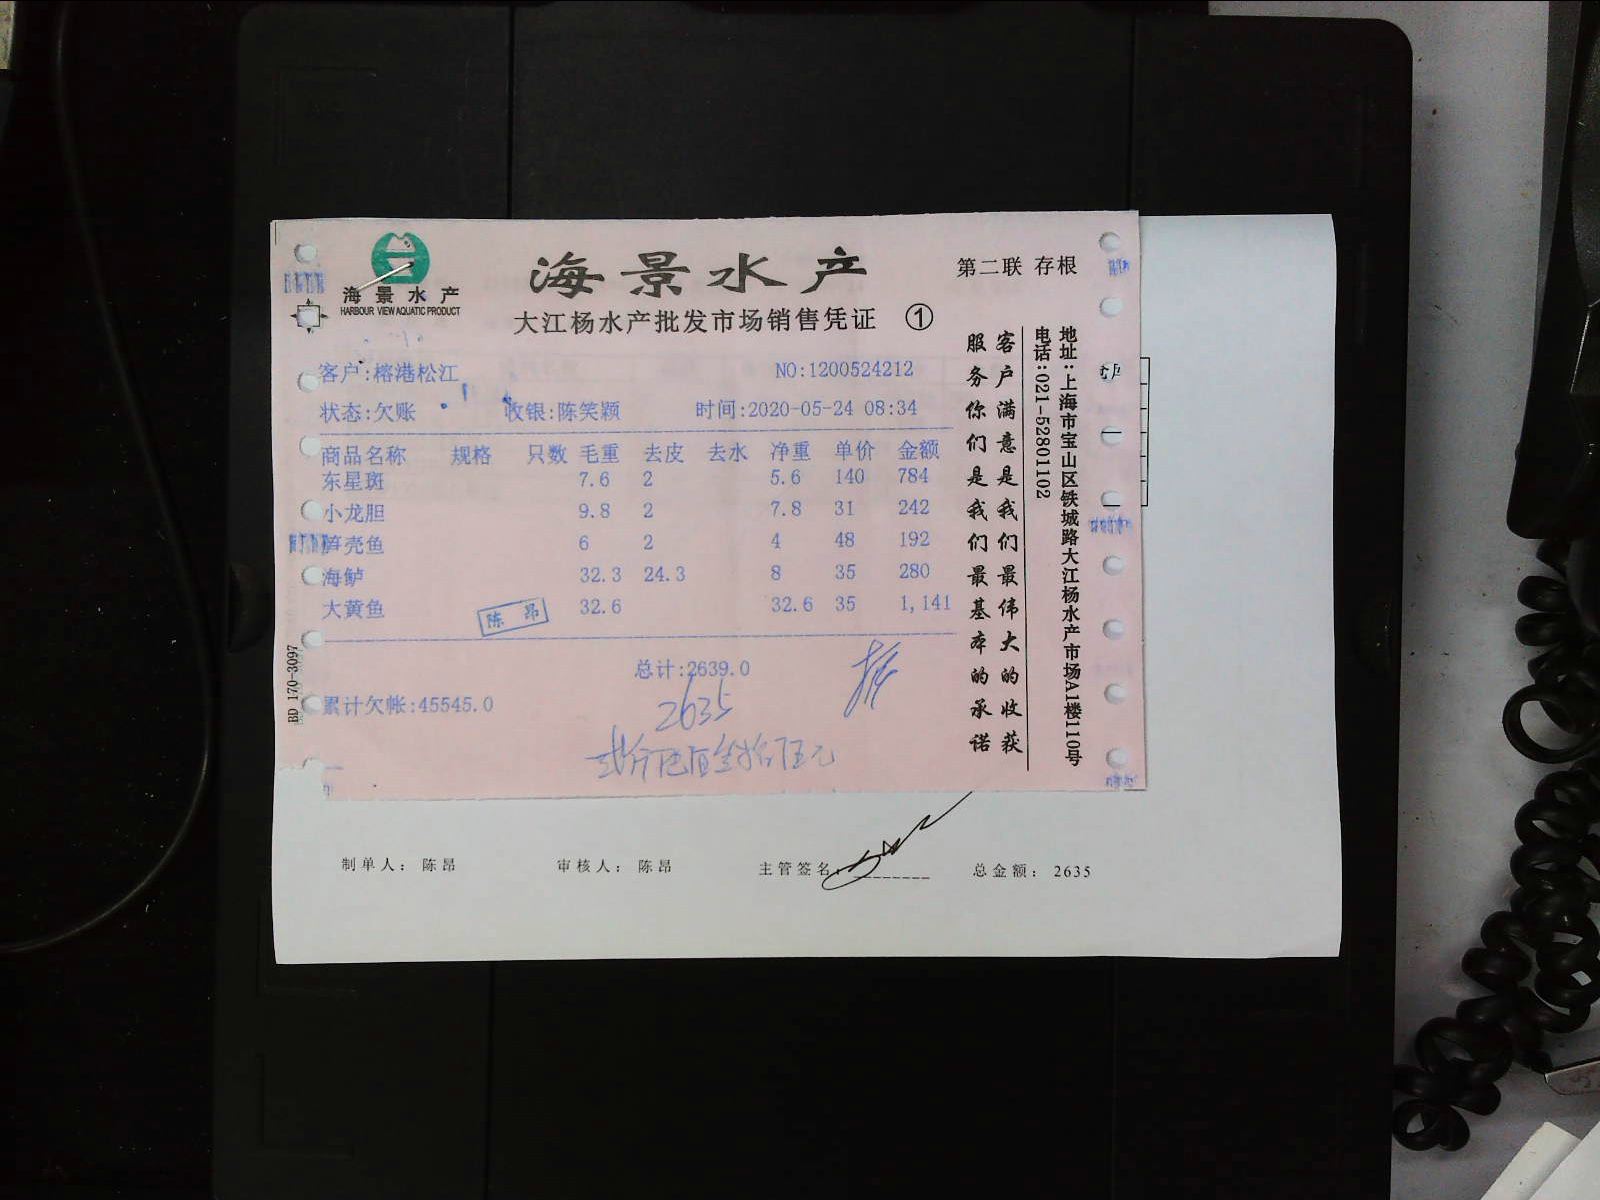 海景水产
HARBOUR VIEW AQUATIC PRODUCT
海景水产
大江杨水产批发市场销售凭证 ①
第二联 存根
客户:榕港松江 NO:1200524212
状态:欠账 收银:陈笑颖 时间:2020-05-24 08:34
商品名称 规格 只数 毛重 去皮 去水 净重 单价 金额
东星斑 7.6 2 5.6 140 784
小龙胆 9.8 2 7.8 31 242
笋壳鱼 6 2 4 48 192
海鲈 32.3 24.3 8 35 280
大黄鱼 32.6 32.6 35 1,141
陈昂
总计:2639.0
累计欠帐:45545.0
2635
客户满意是我们最伟大的收获
服务你们是我们最基本的承诺
地址:上海市宝山区铁城路大江杨水产市场A1楼110号
电话:021-52801102
BD 170-3097
制单人: 陈昂 审核人: 陈昂 主管签名: 总金额: 2635